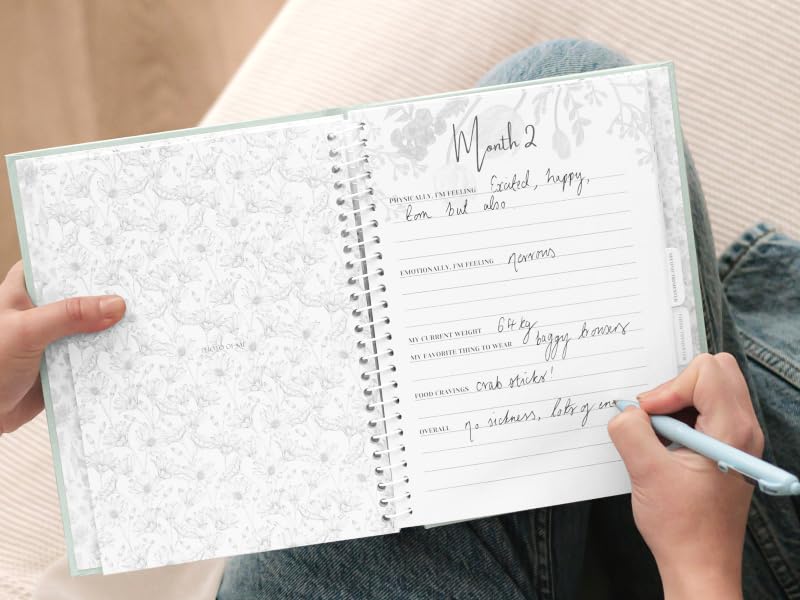 PHOTO OF ME
Month 2
PHYSICALLY, I'M FEELING Excited, happy,
but also
EMOTIONALLY, I'M FEELING nervous
MY CURRENT WEIGHT 64kg
MY FAVORITE THING TO WEAR baggy trousers
FOOD CRAVINGS crab sticks!
OVERALL no sickness, lots of ene